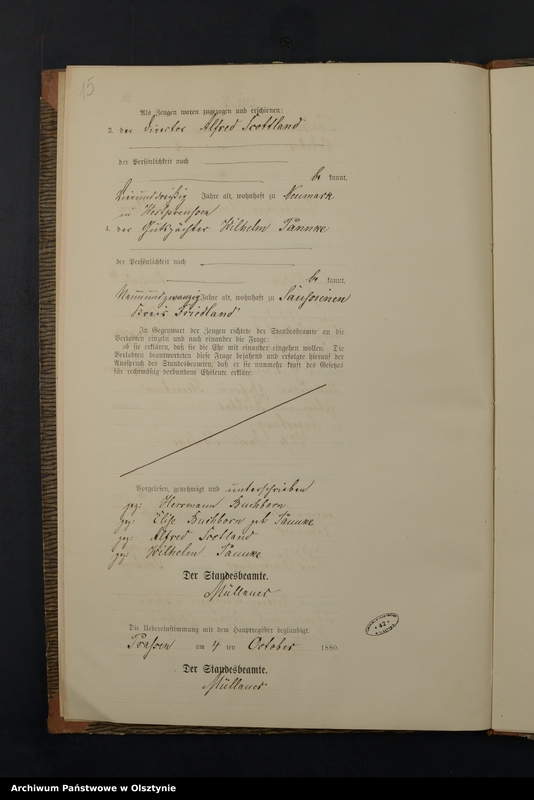 15
Als Zeugen waren zugezogen und erschienen:
3. der Director Alfred Scottland
der Persönlichkeit nach
be kannt,
Vierunddreißig Jahre alt, wohnhaft zu Neumark
in Westpreussen
4. der Gutspächter Wilhelm Tännke
der Persönlichkeit nach
be kannt,
Neunundzwanzig Jahre alt, wohnhaft zu
Kreis Friedland
In Gegenwart der Zeugen richtete der Standesbeamte an die
Verlobten einzeln und nach einander die Frage:
ob sie erklären, daß sie die Ehe mit einander eingehen wollen. Die
Verlobten beantworteten diese Frage bejahend und erfolgte hierauf der
Ausspruch des Standesbeamten, daß er sie nunmehr kraft des Gesetzes
für rechtmäßig verbundene Eheleute erkläre.
Vorgelesen, genehmigt und unterschrieben
gez: Herrmann Buchborn
gez: Elise Buchborn geb Tännke
gez: Alfred Scotland
gez: Wilhelm Tännke
Der Standesbeamte.
Müllauer
Die Uebereinstimmung mit dem Hauptregister beglaubigt
Prassen am 4 ten October 1880.
Der Standesbeamte.
Müllauer
42
Archiwum Państwowe w Olsztynie